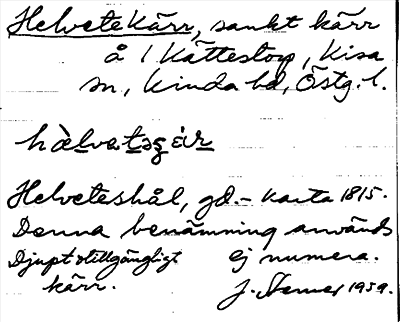 Helvetekärr, sankt kärr
å 1 Kättestorp, Kisa
sn, Kinda hd, Östg. l.
hàlvatəʂɛ́r
Helveteshål, gd.- karta 1815.
Denna benämning används
Djupt otillgängligt ej numera.
kärr. J. 1959.